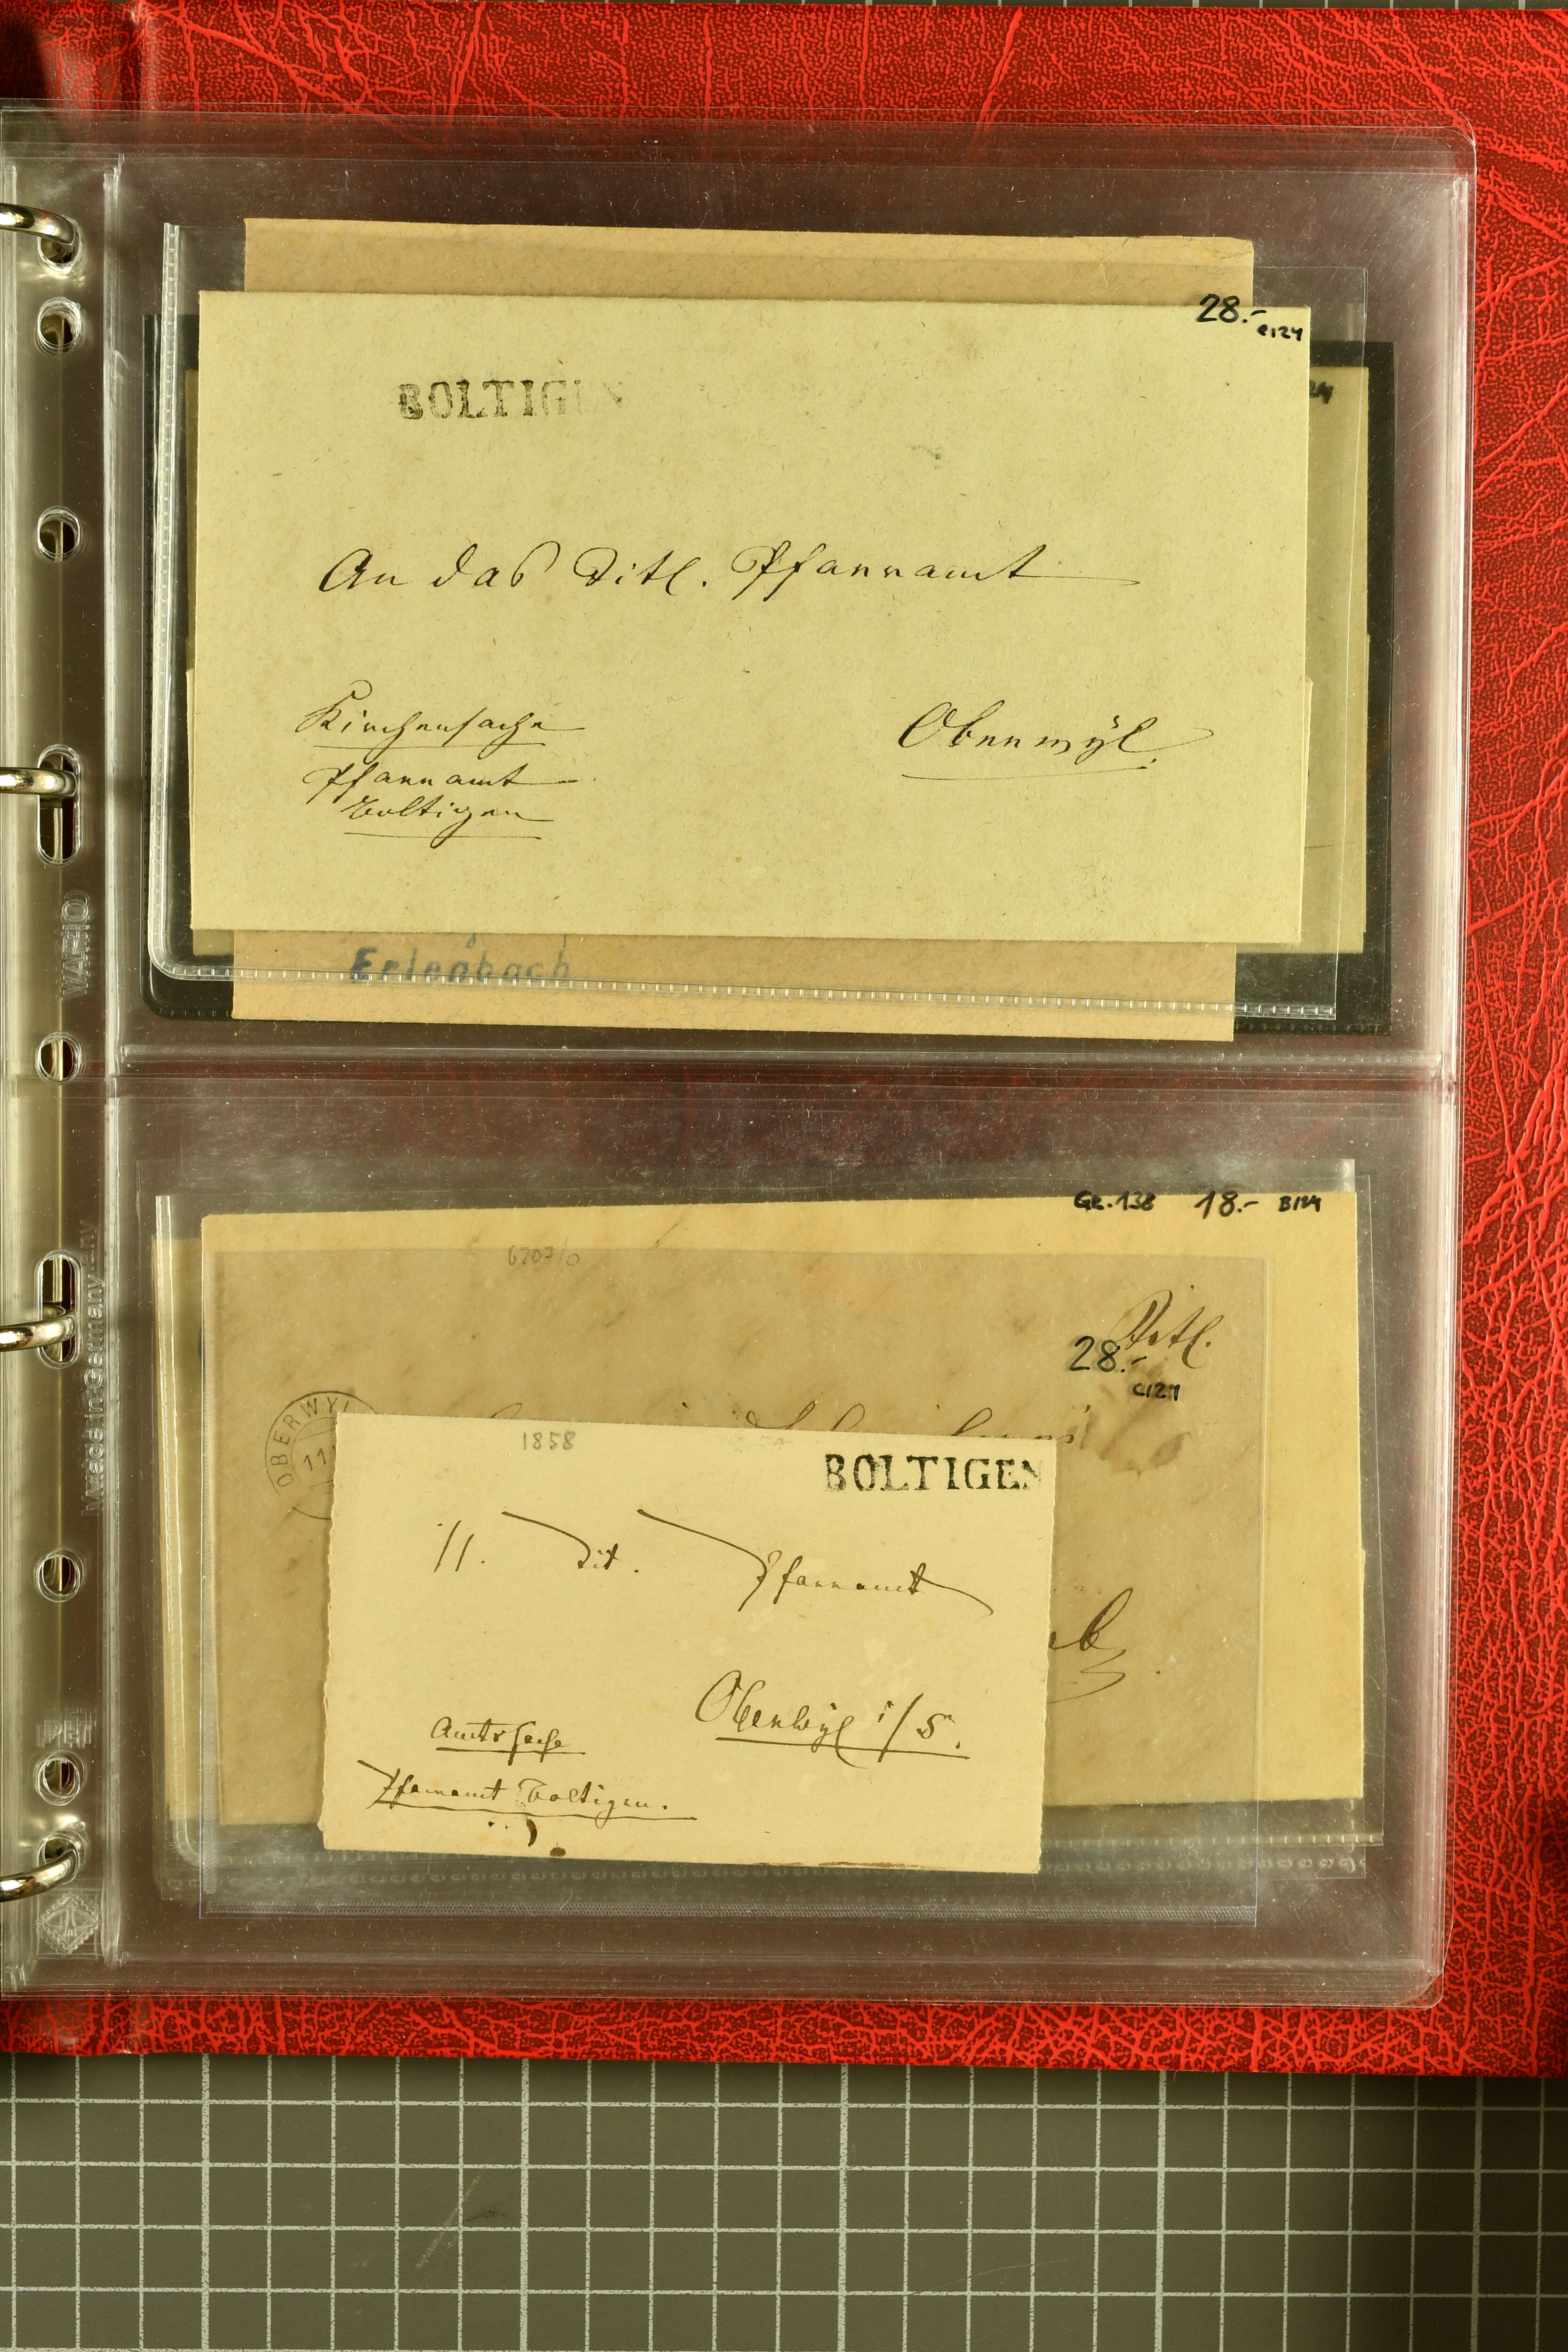 28.-
C124
BOLTIGEN
An das Titl. Pfarramt
Kirchensache
Oberwÿl.
Pfarramt
Boltigen
Erlenbach
VARIO
Made in Germany
GR.138 18.- B124
6207/0
Titl.
28.-
C124
OBERWYL
11
1858
BOLTIGEN
Tit. Pfarramt
Oberwÿl i/S.
Amtssache
Pfarramt Boltigen.